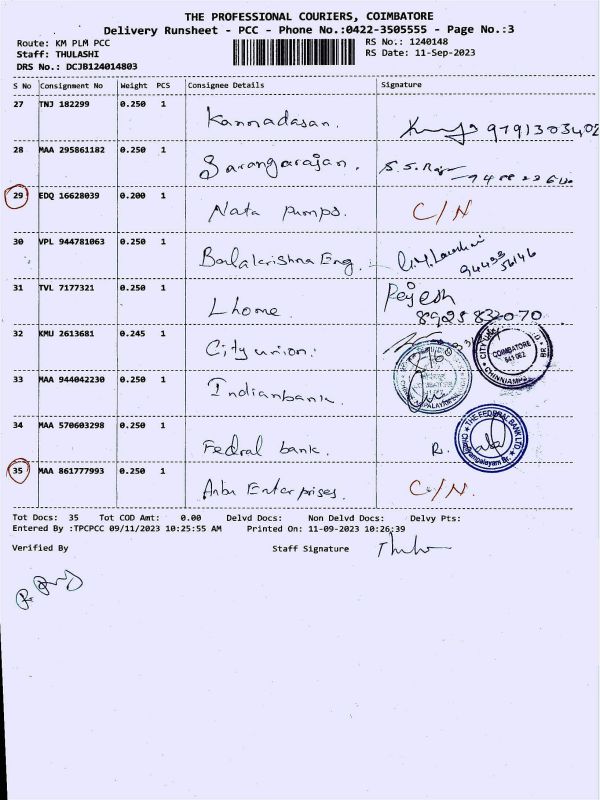 THE PROFESSIONAL COURIERS, COIMBATORE
Delivery Runsheet - PCC - Phone No.:0422-3505555 - Page No.:3
Route: KM PLM PCC RS No.: 1240148
Staff: THULASHI RS Date: 11-Sep-2023
DRS No.: DCJB124014803
S No Consignment No Weight PCS Consignee Details Signature
27 TNJ 182299 0.250 1 Kannadasan. 9791303402
28 MAA 295861182 0.250 1 Sarangarajan. S.S. Raj
29 EDQ 16628039 0.200 1 Nata pumps. C/N
30 VPL 944781063 0.250 1 Balakrishna Eng. 94433 56146
31 TVL 7177321 0.250 1 Lhome. Rejesh
8925832070.
32 KMU 2613681 0.245 1 City union. CITY UNION COIMBATORE 641 062 CHINNIAMP
33 MAA 944042230 0.250 1 Indianbank
34 MAA 570603298 0.250 1 Fedral bank. R. THE FEDERAL BANK LTD. Chinniyampalayam Br.
35 MAA 861777993 0.250 1 Anbu Enterprises. C/N.
Tot Docs: 35 Tot COD Amt: 0.00 Delvd Docs: Non Delvd Docs: Delvy Pts:
Entered By :TPCPCC 09/11/2023 10:25:55 AM Printed On: 11-09-2023 10:26:39
Verified By Staff Signature